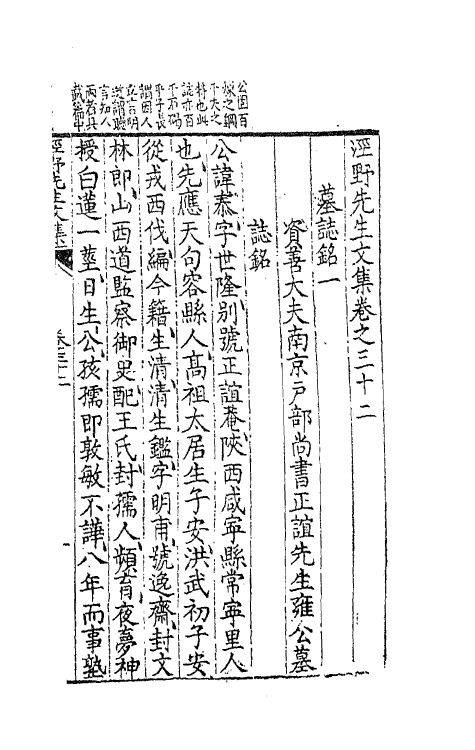 公固百
煉之鋼
誌亦百
謂因人
言知人
兩者具
涇野先生文集卷之三十二
墓誌銘一
資善大夫南京戶部尚書正誼先生雍公墓
誌銘
公諱泰字世隆別號正誼菴陝西咸寧縣常寧里人
也先應天句容縣人高祖太居生子安洪武初子安
從戎西伐編今籍生清清生鑑字明甫號逸齋封文
林郎山西道監察御史配王氏封孺人頻育夜夢神
授白蓮一莖日生公孩孺即敦敏不譁八年而事塾
涇野先生文集
卷三十二